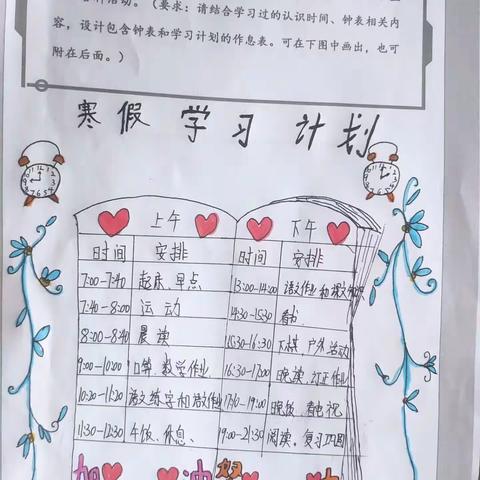 活动。（要求：请结合学习过的认识时间、钟表相关内
容，设计包含钟表和学习计划的作息表。可在下图中画出，也可
附在后面。）
寒假 学习 计划
上午 下午
时间 安排 时间 安排
7:00-7:40 起床、早点 13:00-14:00 语文作业和课文
7:40-8:00 运动 14:30-15:30 看书
8:00-8:40 晨读 15:30-16:30 下棋、户外活动
9:00-10:00 口算、数学作业 16:30-17:00 晚读、订正作业
10:20-11:20 语文练字和语文作业 17:10-19:00 晚饭、看电视
11:30-12:30 午饭、休息、 19:00-21:30 阅读。复习
加 冲